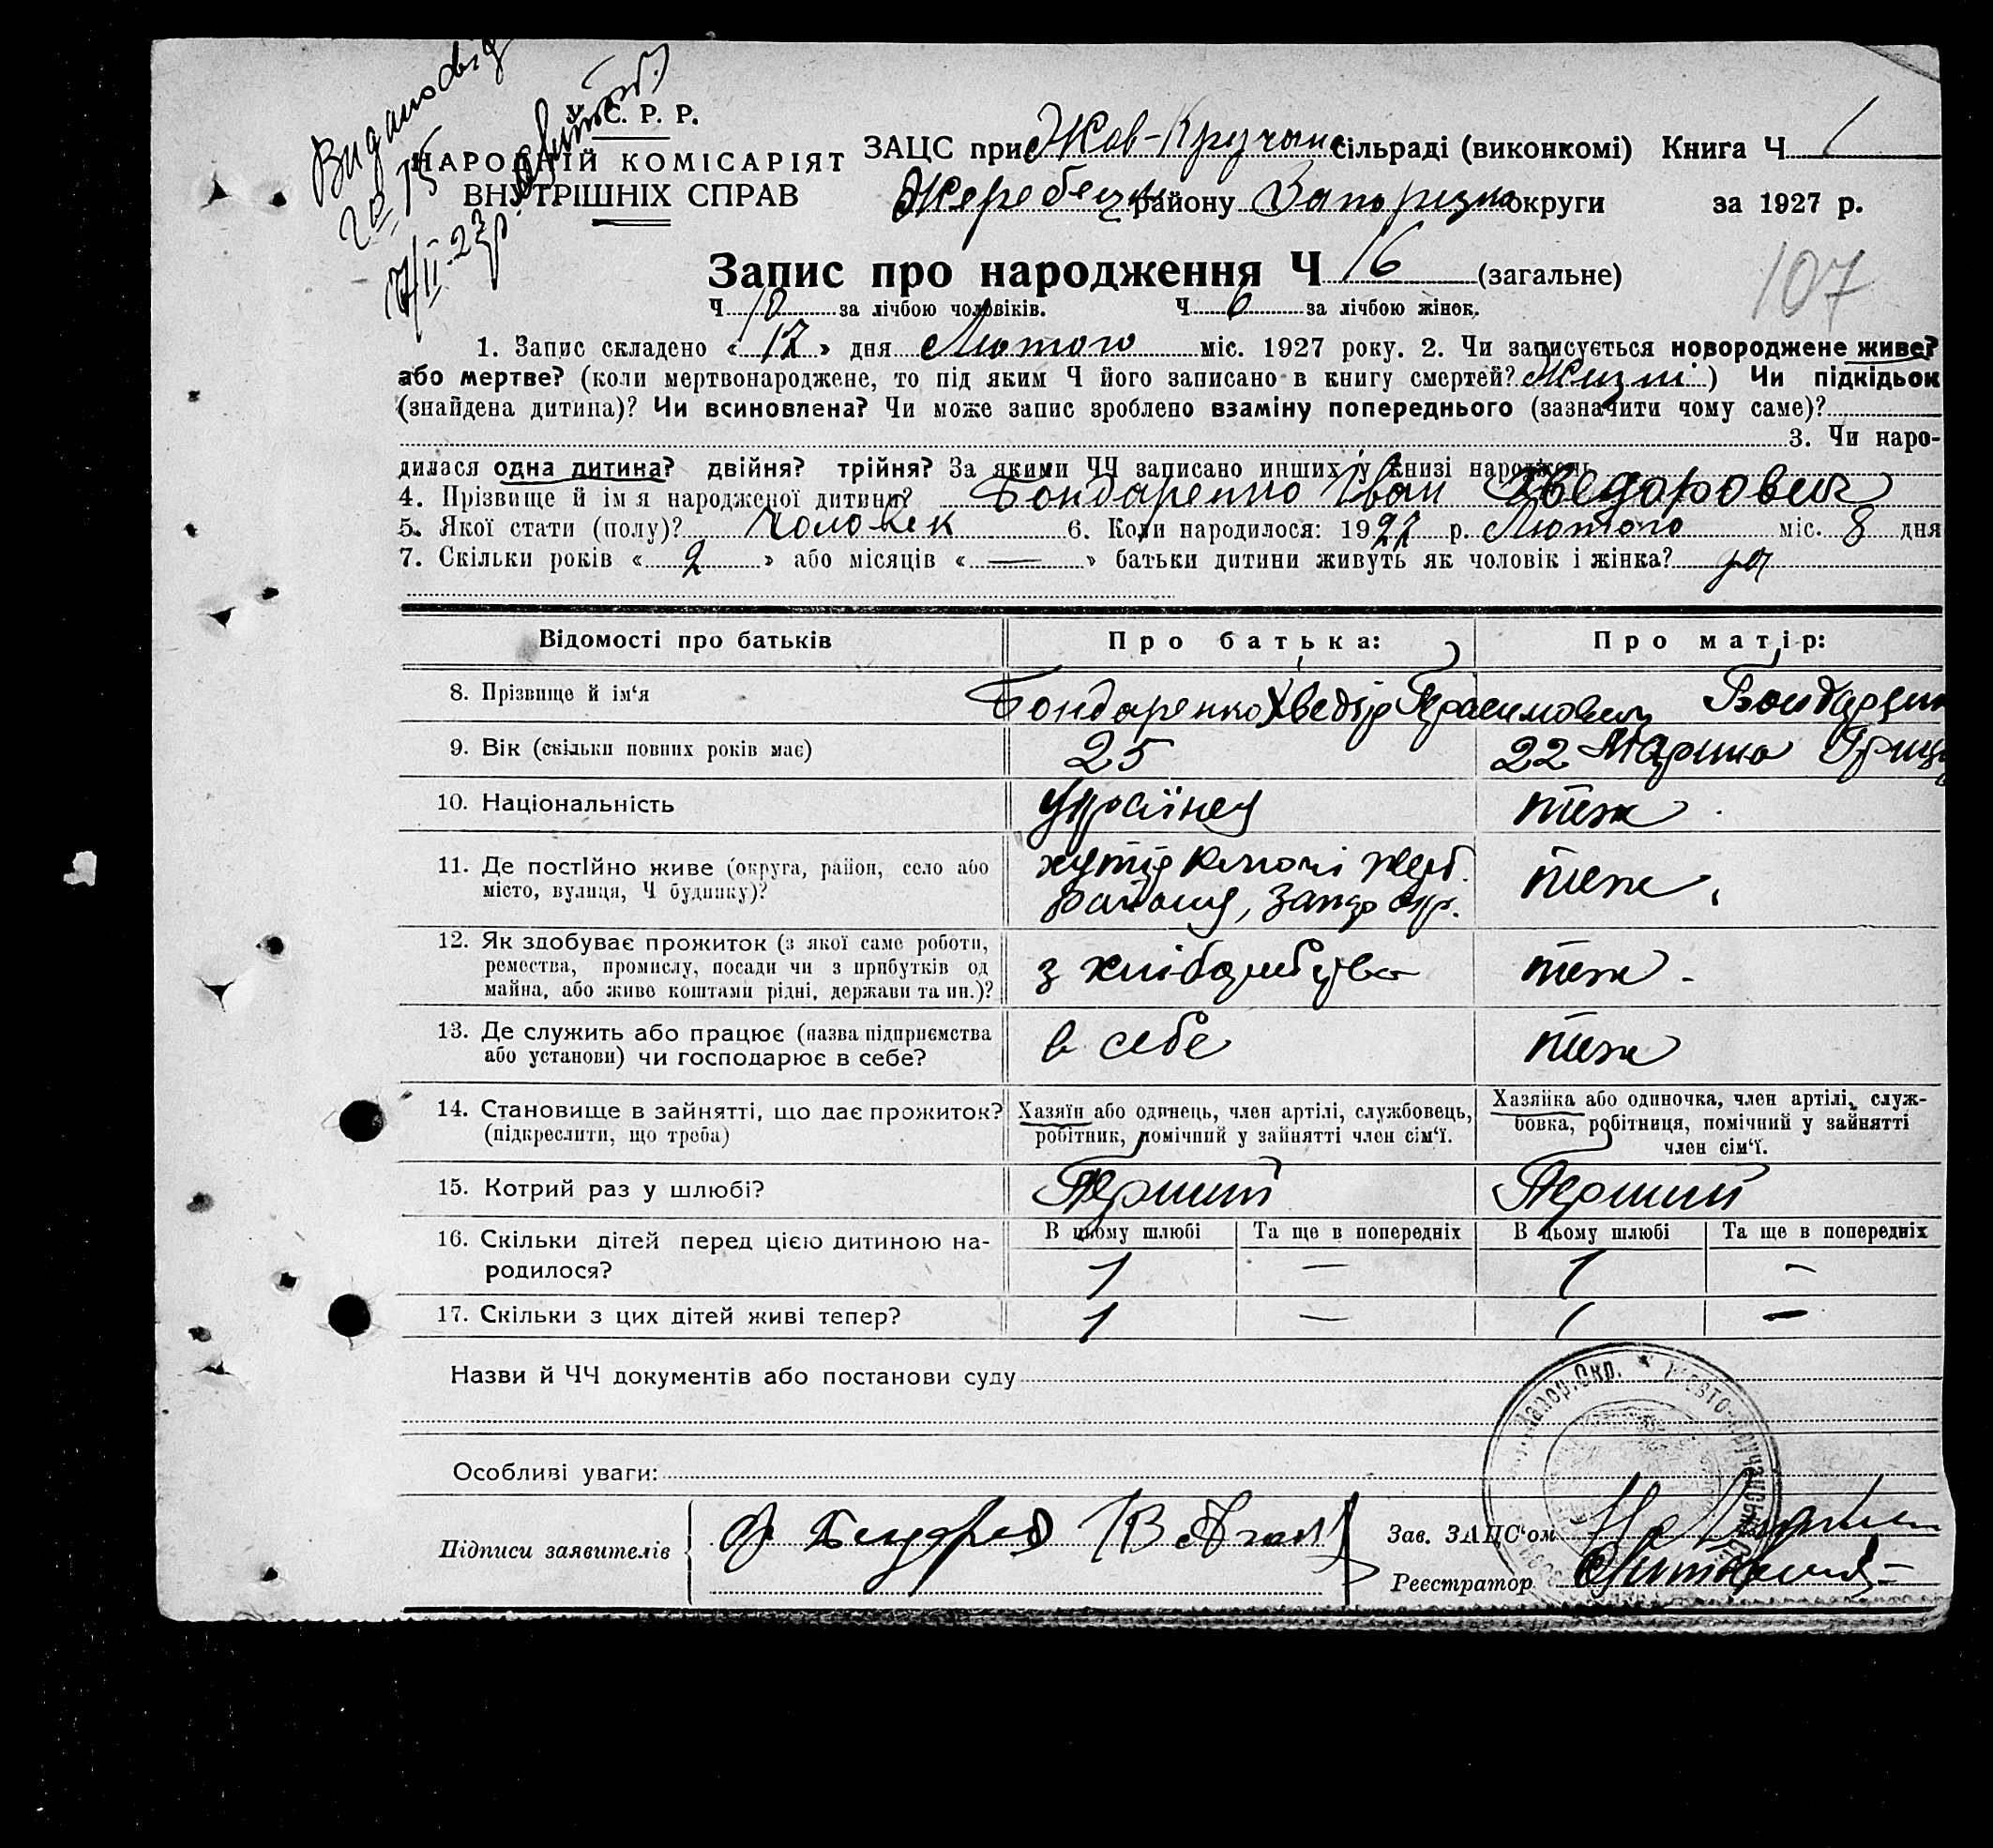 У. С. Р. Р.
НАРОДНІЙ КОМІСАРІЯТ
ВНУТРІШНІХ СПРАВ
ЗАЦС при Жов-Кручан сільраді (виконкомі) Книга Ч 1
Жеребец району Запоризко округи за 1927 р.
Запис про народження Ч 16 (загальне)
107
Ч 10 за лічбою чоловіків. Ч 6 за лічбою жінок.
1. Запис складено « 17 » дня Лютого міс. 1927 року. 2. Чи записується новороджене живе?
або мертве? (коли мертвонароджене, то під яким Ч його записано в книгу смертей? ) Чи підкідьок
(знайдена дитина)? Чи всиновлена? Чи може запис зроблено взаміну попереднього (зазначити чому саме)?
3. Чи наро-
дилася одна дитина? двійня? трійня? За якими ЧЧ записано инших у книзі народжень
4. Прізвище й ім'я народженої дитини? Бондаренко Іван Хведорович
5. Якої стати (полу)? Чоловек 6. Коли народилося: 1927 р. Лютого міс. 8 дня
7. Скільки років « 2 » або місяців « — » батьки дитини живуть як чоловік і жінка?
Відомості про батьків Про батька: Про матір:
8. Прізвище й ім'я Бондаренко Хведір Герасимович Бондаренко
9. Вік (скільки повних років має) 25 22 Марина
10. Національність Українец теж
11. Де постійно живе (округа, район, село або
місто, вулиця, Ч будинку)? хутір району, Запор окр. теж
12. Як здобуває прожиток (з якої саме роботи,
ремества, промислу, посади чи з прибутків од
майна, або живе коштами рідні, держави та ин.)? з хліборобства теж
13. Де служить або працює (назва підприємства
або установи) чи господарює в себе? в себе теж
14. Становище в зайнятті, що дає прожиток?
(підкреслити, що треба)
Хазяїн або одинець, член артілі, службовець,
робітник, помічний у зайнятті член сім'ї.
Хазяйка або одиночка, член артілі, служ-
бовка, робітниця, помічний у зайнятті
член сім'ї.
15. Котрий раз у шлюбі? Перший Перший
16. Скільки дітей перед цією дитиною на-
родилося?
В цьому шлюбі Та ще в попередніх В цьому шлюбі Та ще в попередніх
1 — 1 —
17. Скільки з цих дітей живі тепер? 1 — 1 —
Назви й ЧЧ документів або постанови суду
Особливі уваги:
Підписи заявителів
Зав. ЗАЦС'ом
Реєстратор